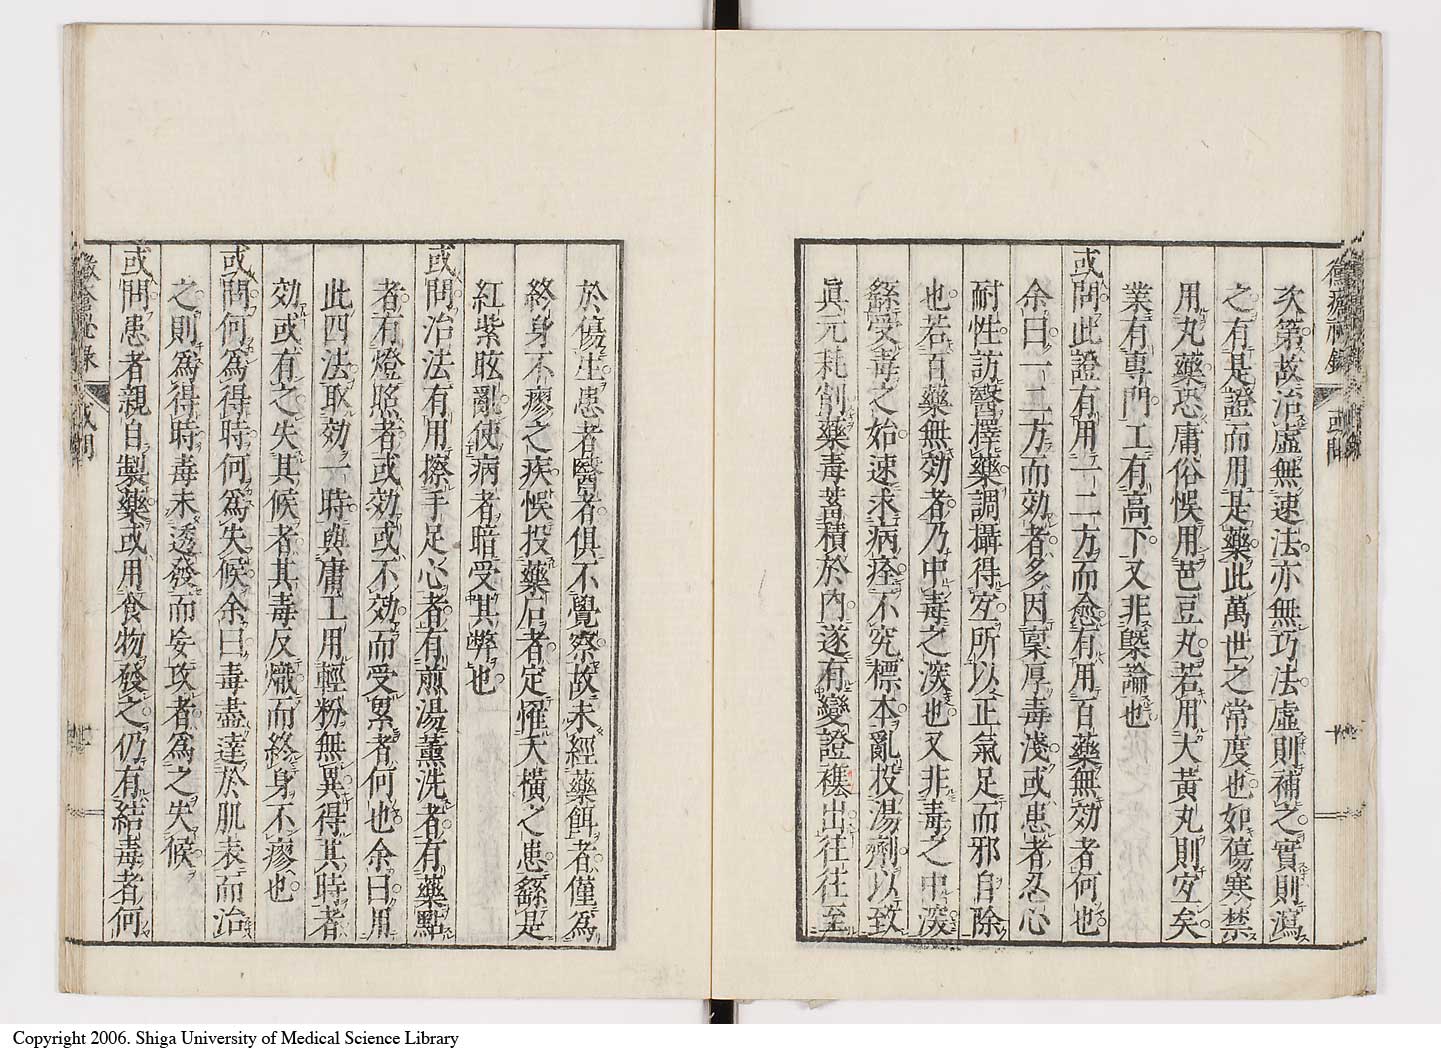 次第故治虛無速法亦無巧法虛則補之實則瀉
之有是證而用是藥此萬世之常度也如傷寒禁
用丸藥恐庸俗悞用芭豆丸若用大黃丸則宜矣
業有專門工有高下又非槩論也
或問此證有用一二方而愈有用百藥無効者何也
余曰一二方而効者多因稟厚毒淺或患者忍心
耐性訪醫擇藥調攝得宜所以正氣足而邪自除
也若百藥無効者乃中毒之深也又非毒之中深
繇受毒之始速求病痊不究標本亂投湯劑以致
眞元耗削藥毒蓄積於內遂有變證襍出往往至
於傷生患者醫者俱不覺察故未經藥餌者僅爲
終身不瘳之疾悞投藥石者定懼夭橫之患繇是
紅紫眩亂使病者暗受其弊也
或問治法有用擦手足心者有煎湯薰洗者有藥點
者有燈照者或効或不効而受累者何也余曰用
此四法取効一時與庸工用輕粉無異得其時者
効或有之失其候者其毒反熾而終身不瘳也
或問何爲得時何爲失候余曰毒盡達於肌表而治
之則爲得時毒未透發而妄攻者爲之失候
或問患者親自製藥或用食物發之仍有結毒者何
黴瘡秘錄
或問
Copyright 2006. Shiga University of Medical Science Library